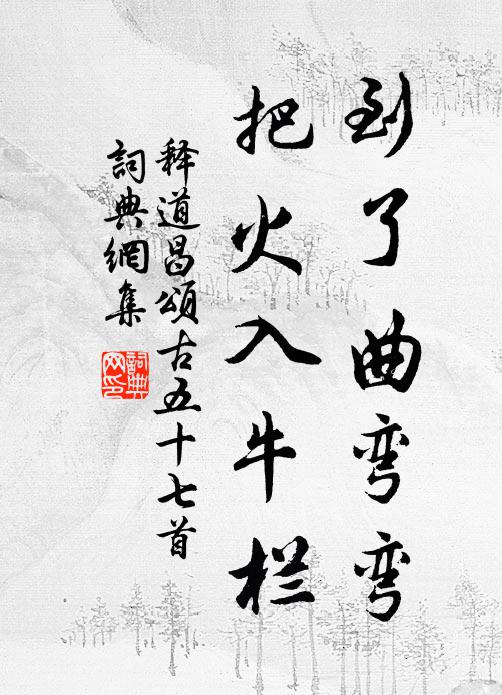 到了曲弯弯
把火入牛栏
释道昌颂古五十七首
詞典網集
詞典
网印